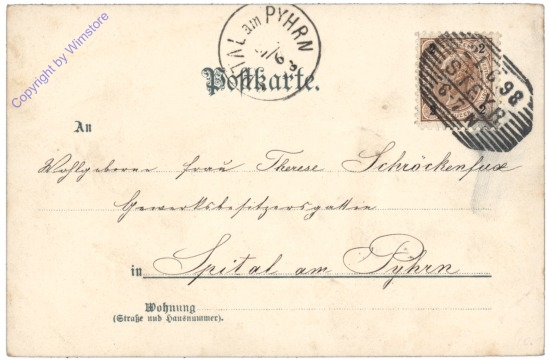 copyright by Wimstore
SPITAL am PYHRN
Postkarte.
STEYR
6.98
An
Wohlgeborne Frau Therese Schröckenfux
Gewerksbesitzersgattin
in Spital am Pyhrn
Wohnung
(Straße und Hausnummer).